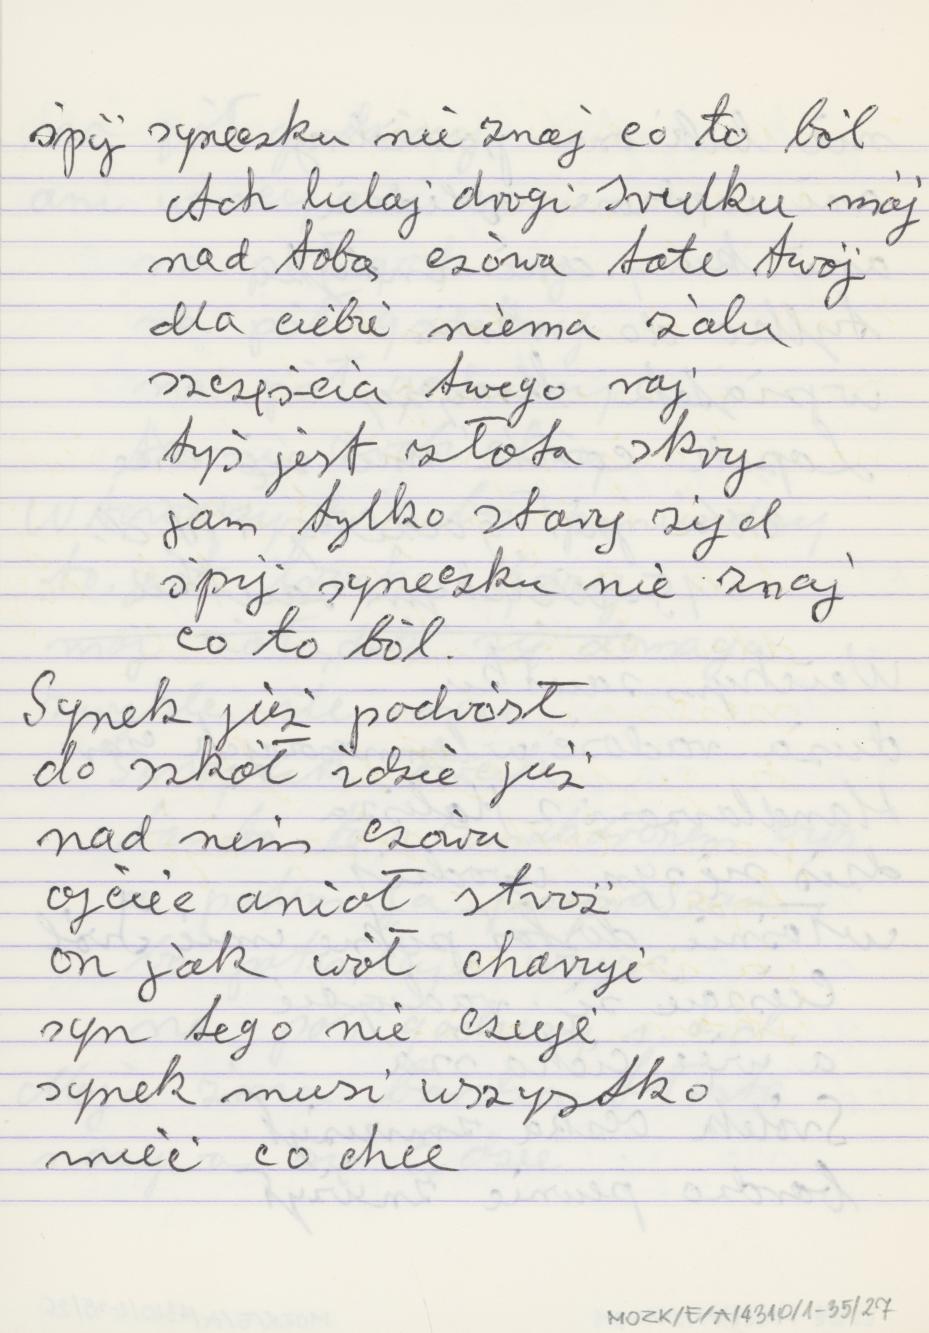 śpij syneczku nie znaj co to ból
Ach lulaj drogi Srulku mój
nad tobą czówa tate twój
dla ciebie niema żalu
szczęścia twego raj
tyś jest złota skry
jam tylko stary żyd
śpij syneczku nie znaj
co to ból.
Synek już podróst
do szkół idzie już
nad neim czówa
ojćiec anioł stróż
on jak wół charuje
syn tego nie czuje
synek musi wszystko
mieć co chce
MOZK/E/A/4310/1-35/27